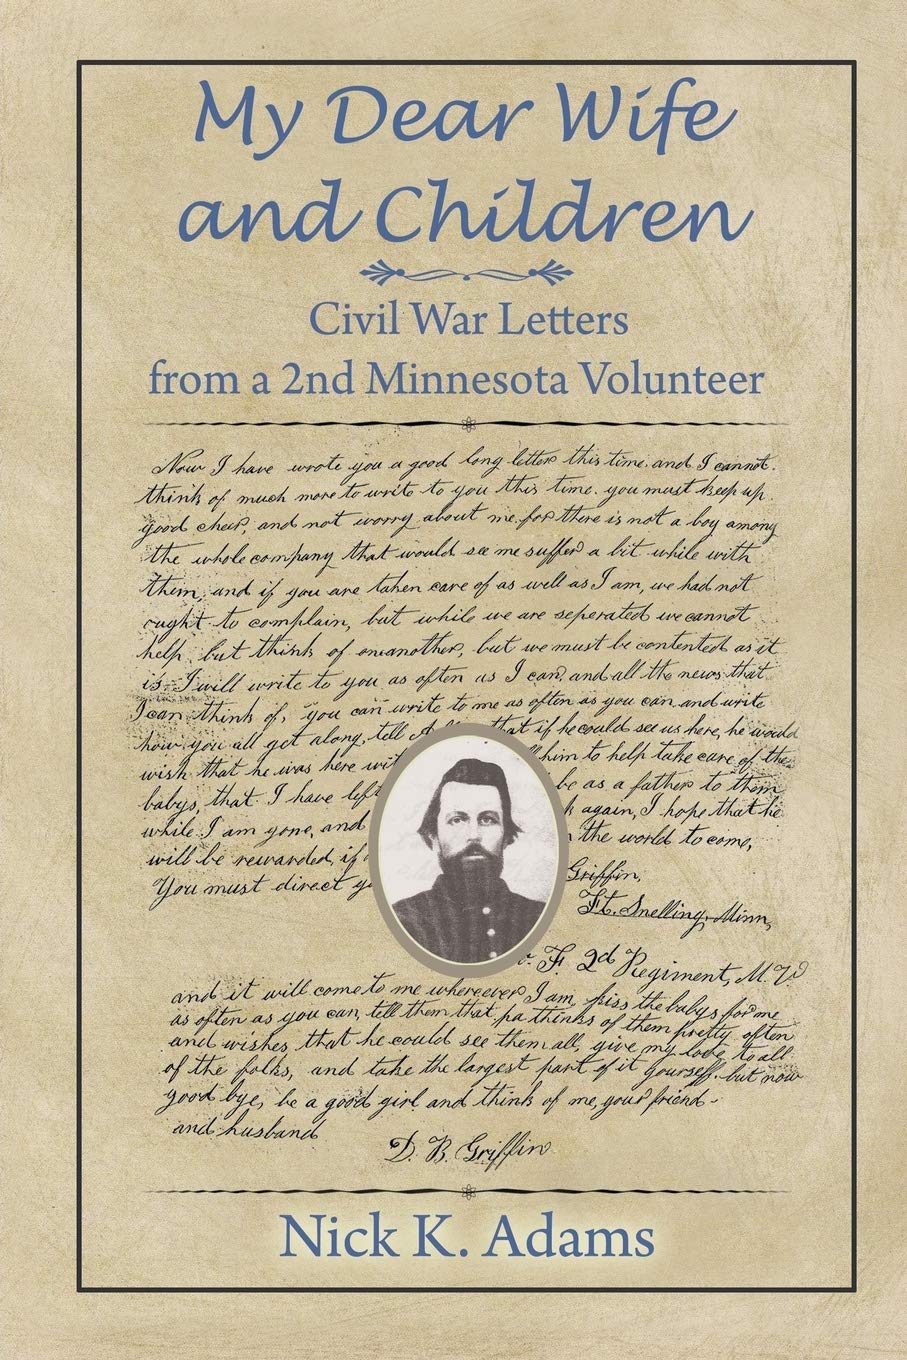 My Dear Wife
and Children
Civil War Letters
from a 2nd Minnesota Volunteer
Now I have wrote you a good long letter this time. and I cannot.
think of much more to write to you this time. you must keep up
good cheer, and not worry about me. for there is not a boy among
the whole company that would see me suffer a bit while with
them, and if you are taken care of as well as I am, we had not
ought to complain, but while we are seperated we cannot
help, but think of oneanother, but we must be contented as it
is. I will write to you as often as I can, and all the news that
I can think of, you can write to me as often as you can and write
how you all get along, tell that if he could see us here, he would
wish that he was here him to help take care of the
babys, that I have left be as a father to them
while I am gone, and again, I hope that he
will be rewarded, if the world to come,
You must direct Griffin,
Ft. Snelling, Minn,
F. 2d Regiment, M. V
and it will come to me whereever I am, kiss the babys for me
as often as you can, tell them that pa thinks of them pretty often
and wishes that he could see them all, give my love to all
of the folks, and take the largest part of it yourself. but now
good bye, be a good girl and think of me, your friend
and husband
D. B. Griffin
Nick K. Adams